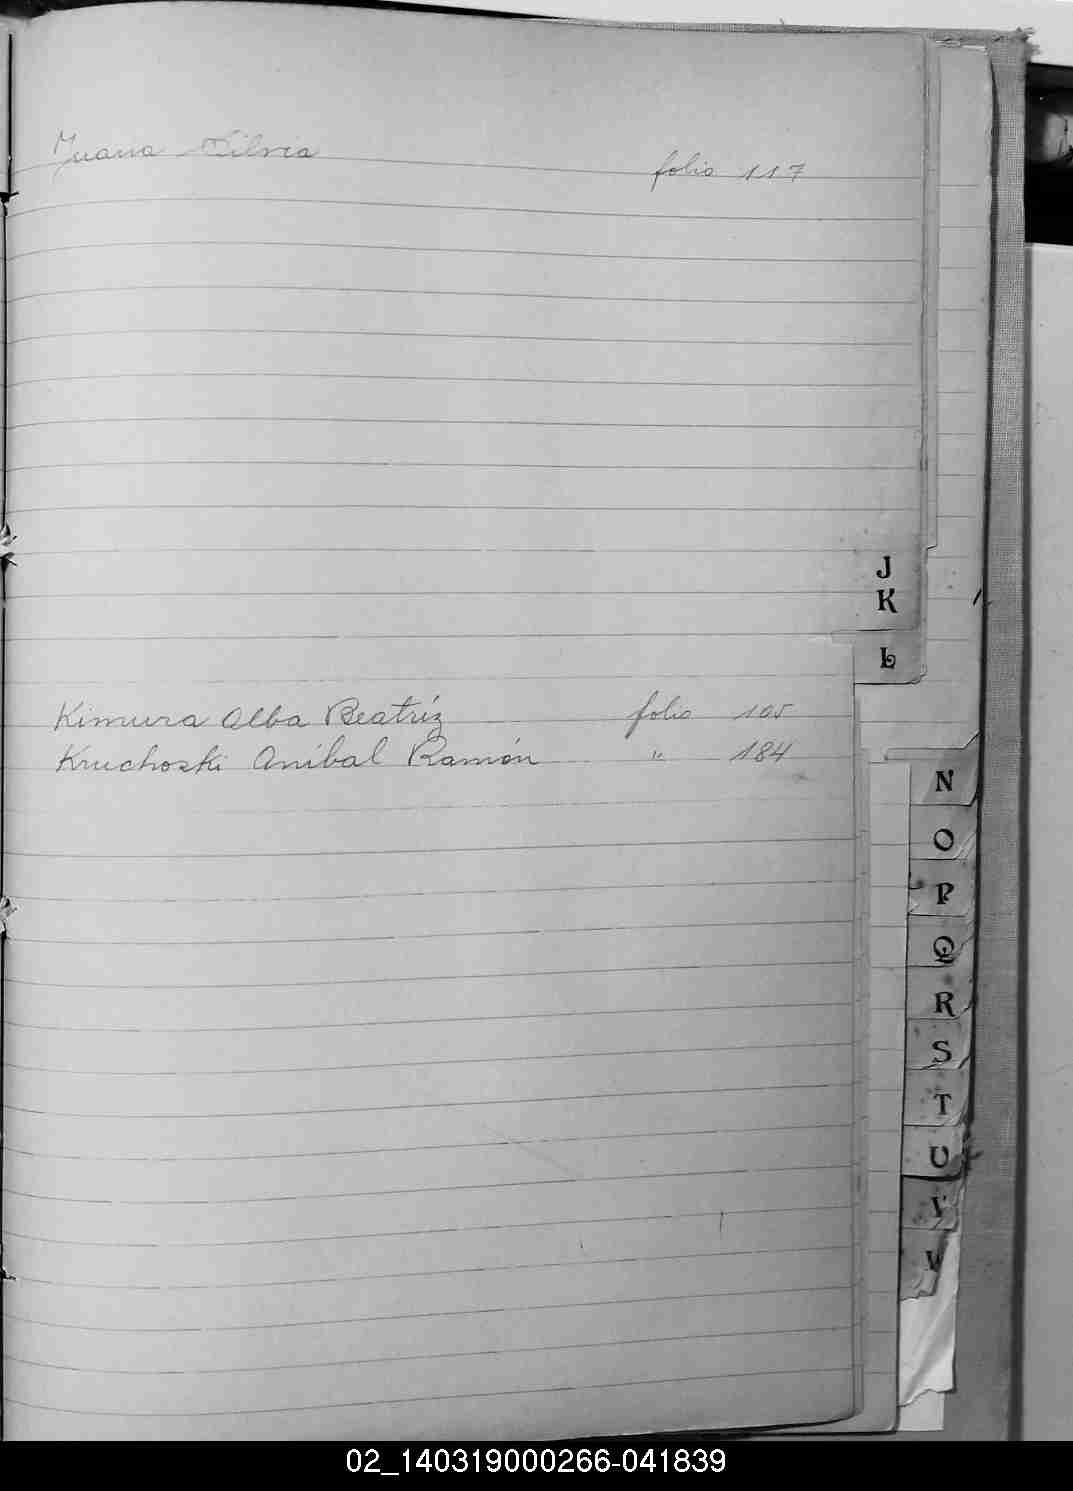 Juana Silvia folio 117
J
K
L
Kimura Alba Beatríz folio 105
Kruchoski Aníbal Ramón " 184
N
O
P
Q
R
S
T
U
V
W
02_140319000266-041839